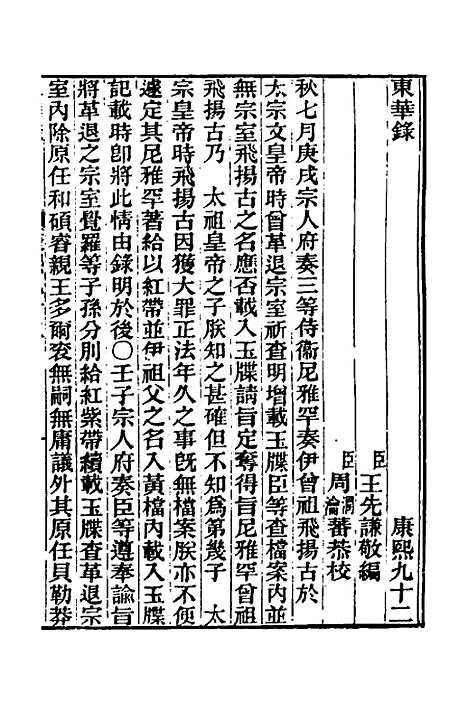 東華錄　康熙九十二
臣王先謙敬編
臣周潤蕃瀹蕃恭校
秋七月庚戌宗人府奏三等侍衞尼雅罕奏伊曾祖飛揚古於
太宗文皇帝時曾革退宗室祈查明增載玉牒臣等查檔案內並
無宗室飛揚古之名應否載入玉牒請旨定奪得旨尼雅罕曾
祖飛揚古乃　太祖皇帝之子朕知之甚確但不知爲第幾子　太
宗皇帝時飛揚古因獲大罪正法年久之事旣無檔案朕亦不便
遽定其尼雅罕著給以紅帶並伊祖父之名入黃檔內載入玉牒
記載時卽將此情由錄明於後○壬子宗人府奏臣等遵奉諭旨
將革退之宗室覺羅等子孫分別給紅紫帶續載玉牒查革退宗
室內除原任和碩睿親王多爾衮無嗣無庸議外其原任貝勒莽